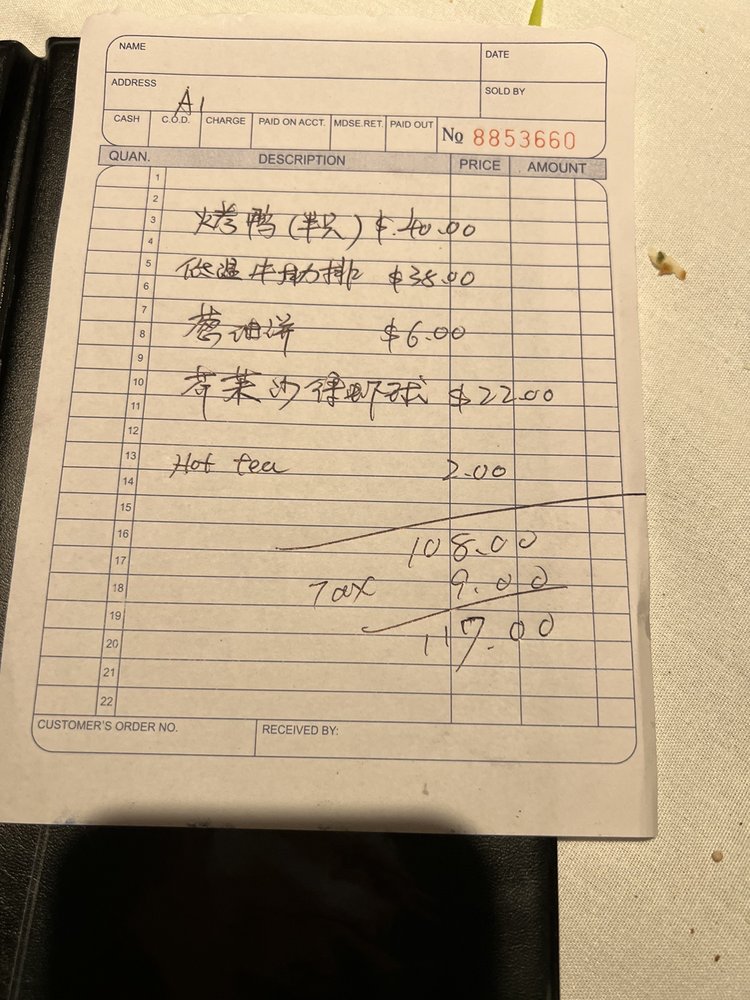 NAME
DATE
ADDRESS
SOLD BY
A1
CASH C.O.D. CHARGE PAID ON ACCT. MDSE.RET. PAID OUT
No 8853660
QUAN. DESCRIPTION PRICE AMOUNT
1
2
3 烤鸭(半只) $40.00
4
5 低温牛肋排 $38.00
6
7
8 葱油饼 $6.00
9
10 沙律虾球 $22.00
11
12
13 Hot tea 2.00
14
15
16 108.00
17
18 Tax 9.00
19
20 117.00
21
22
CUSTOMER'S ORDER NO.
RECEIVED BY: